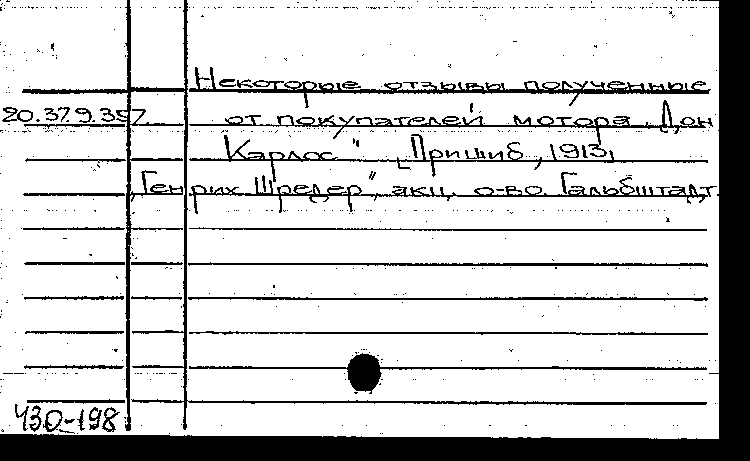 Некоторые отзывы полученные
20.37.9.357 от покупателей мотора „Дон
Карлос" [Пришиб, 1913,
„Генрих Шредер", акц. о-во. Гальбштадт.
430-198